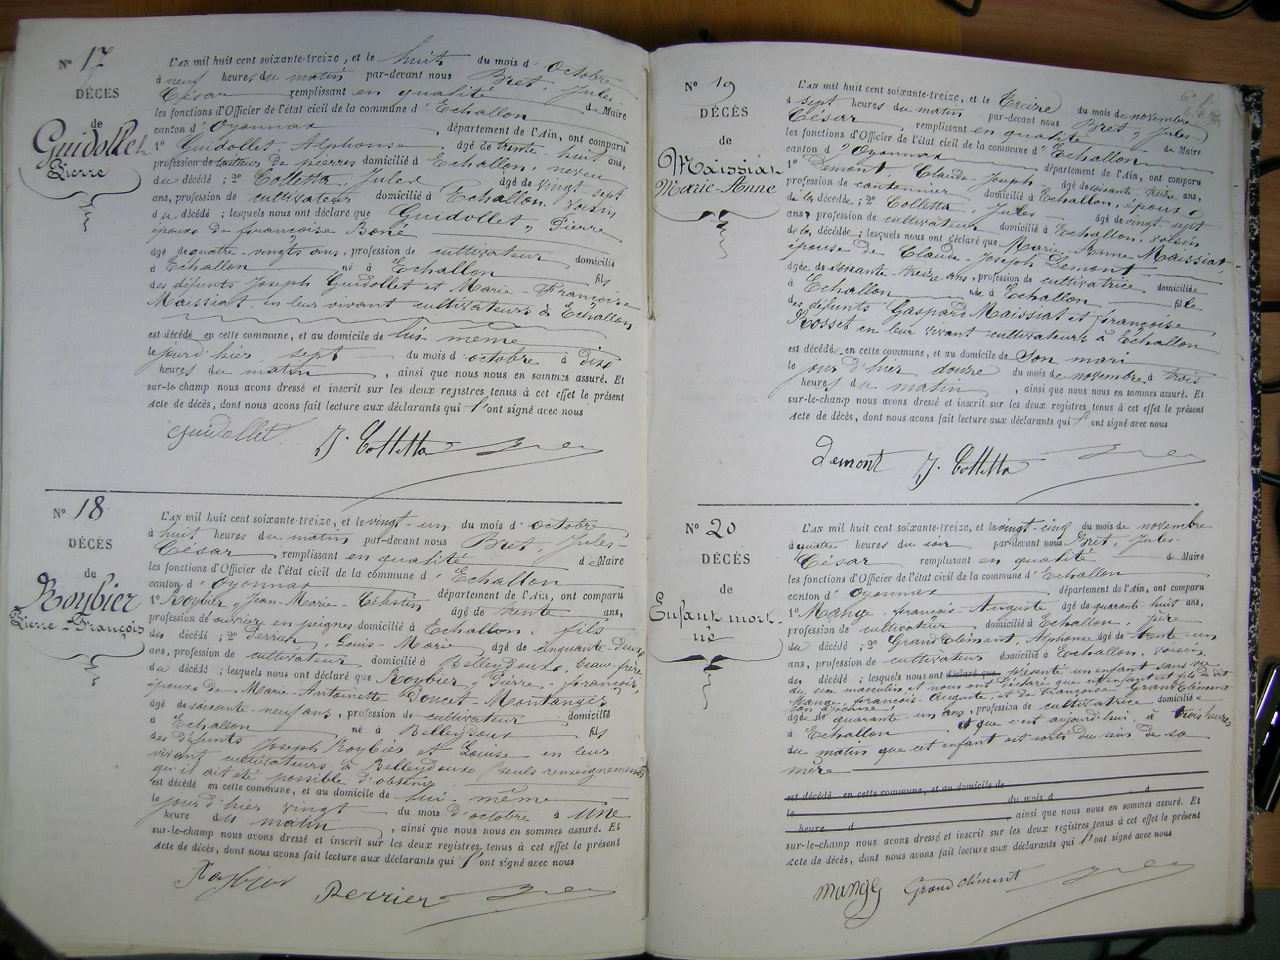 N° 17
DÉCÈS
de
Guidollet
Pierre
L'an mil huit cent soixante-treize, et le huit du mois d'octobre
à neuf heures du matin par-devant nous Bret, Jules-
César remplissant en qualité de Maire
les fonctions d'Officier de l'état civil de la commune d'Echallon
canton d'Oyonnax, département de l'Ain, ont comparu
1° Guidollet, Alphonse, âgé de trente huit ans,
profession de tailleurs de pierres domicilié à Echallon, neveu
du décédé ; 2° Colletta, Jules âgé de vingt sept
ans, profession de cultivateur domicilié à Echallon, voisin
du décédé ; lesquels nous ont déclaré que Guidollet, Pierre
époux de françoise Boné
âgé de quatre-vingts ans, profession de cultivateur domicilié
à Echallon né à Echallon fils
des défunts Joseph Guidollet et Marie-Françoise
Maissiat, en leur vivant cultivateurs à Echallon
est décédé en cette commune, et au domicile de lui même
le jour d'hier sept du mois d'octobre à dix
heures du matin, ainsi que nous nous en sommes assuré. Et
sur-le-champ nous avons dressé et inscrit sur les deux registres tenus à cet effet le présent
acte de décès, dont nous avons fait lecture aux déclarants qui l'ont signé avec nous
Guidollet J. Colletta
N° 18
DÉCÈS
de
Roybier
Pierre-François
L'an mil huit cent soixante-treize, et le vingt-un du mois d'octobre
à huit heures du matin par-devant nous Bret, Jules-
César remplissant en qualité de Maire
les fonctions d'Officier de l'état civil de la commune d'Echallon
canton d'Oyonnax département de l'Ain, ont comparu
1° Roybier, Jean-Marie-Célestin âgé de trente ans,
profession de ouvrier en peignes domicilié à Echallon, fils
du décédé ; 2° Perrier, Louis-Marie âgé de cinquante deux
ans, profession de cultivateur domicilié à Belleydoux, beau-frère
du décédé ; lesquels nous ont déclaré que Roybier, Pierre-françois,
époux de Marie-Antoinette Poncet-Montanges
âgé de soixante-neuf ans, profession de cultivateur domicilié
à Echallon né à Belleydoux fils
des défunts Joseph Roybier et Louise en leur
vivant cultivateurs à Belleydoux (seuls renseignements
qu'il ait été possible d'obtenir
est décédé en cette commune, et au domicile de lui-même
le jour d'hier vingt du mois d'octobre à une
heure du matin, ainsi que nous nous en sommes assuré. Et
sur-le-champ nous avons dressé et inscrit sur les deux registres tenus à cet effet le présent
acte de décès, dont nous avons fait lecture aux déclarants qui l'ont signé avec nous
Roybier Perrier
N° 19
DÉCÈS
de
Maissiat
Marie-Anne
L'an mil huit cent soixante-treize, et le Treize du mois de novembre
à sept heures du matin par-devant nous Bret, Jules
César remplissant en qualité de Maire
les fonctions d'Officier de l'état civil de la commune d'Echallon
canton d'Oyonnax département de l'Ain, ont comparu
1° Demont, Claude-Joseph âgé de soixante treize ans,
profession de cantonnier domicilié à Echallon, époux
de la décédée ; 2° Colletta, Jules âgé de vingt sept
ans, profession de cultivateur domicilié à Echallon, voisin
de la décédée ; lesquels nous ont déclaré que Marie-Anne Maissiat
épouse de Claude-Joseph Demont
âgée de soixante-treize ans, profession de cultivatrice domiciliée
à Echallon née à Echallon fille
des défunts Gaspard Maissiat et françoise
Rosset en leur vivant cultivateurs à Echallon
est décédé en cette commune, et au domicile de Son mari
le jour d'hier douze du mois de novembre à trois
heures du matin, ainsi que nous nous en sommes assuré. Et
sur-le-champ nous avons dressé et inscrit sur les deux registres tenus à cet effet le présent
acte de décès, dont nous avons fait lecture aux déclarants qui l'ont signé avec nous
Demont J. Colletta
N° 20
DÉCÈS
de
Enfant mort-
né
L'an mil huit cent soixante-treize, et le vingt-cinq du mois de novembre
à quatre heures du soir par-devant nous Bret, Jules-
César remplissant en qualité de Maire
les fonctions d'Officier de l'état civil de la commune d'Echallon
canton d'Oyonnax département de l'Ain, ont comparu
1° Mange, françois-Auguste âgé de quarante huit ans,
profession de cultivateur domicilié à Echallon, père
du décédé ; 2° GrandClément, Alphonse âgé de trente-un
ans, profession de cultivateur domicilié à Echallon, voisin
du décédé ; lesquels nous ont déclaré que présenté un enfant sans vie
du sexe masculin et nous ont déclaré que cet enfant est fils de dit
Mange françois-Auguste et de françoise GrandClément
son épouse
âgée de quarante un ans, profession de cultivatrice domiciliée
à Echallon et que c'est aujourd'hui à trois heures
du matin que cet enfant est sorti du sein de sa
mère
est décédé en cette commune, et au domicile de
le du mois d à
heure d ainsi que nous nous en sommes assuré. Et
sur-le-champ nous avons dressé et inscrit sur les deux registres tenus à cet effet le présent
acte de décès, dont nous avons fait lecture aux déclarants qui l'ont signé avec nous
Mange Grandclément